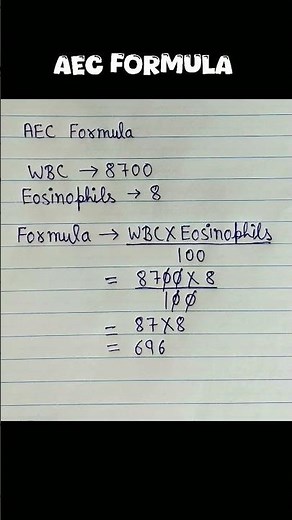 AEC FORMULA
AEC Formula
WBC → 8700
Eosinophils → 8
Formula → WBC X Eosinophils
100
= 8700 X 8
100
= 87X8
= 696